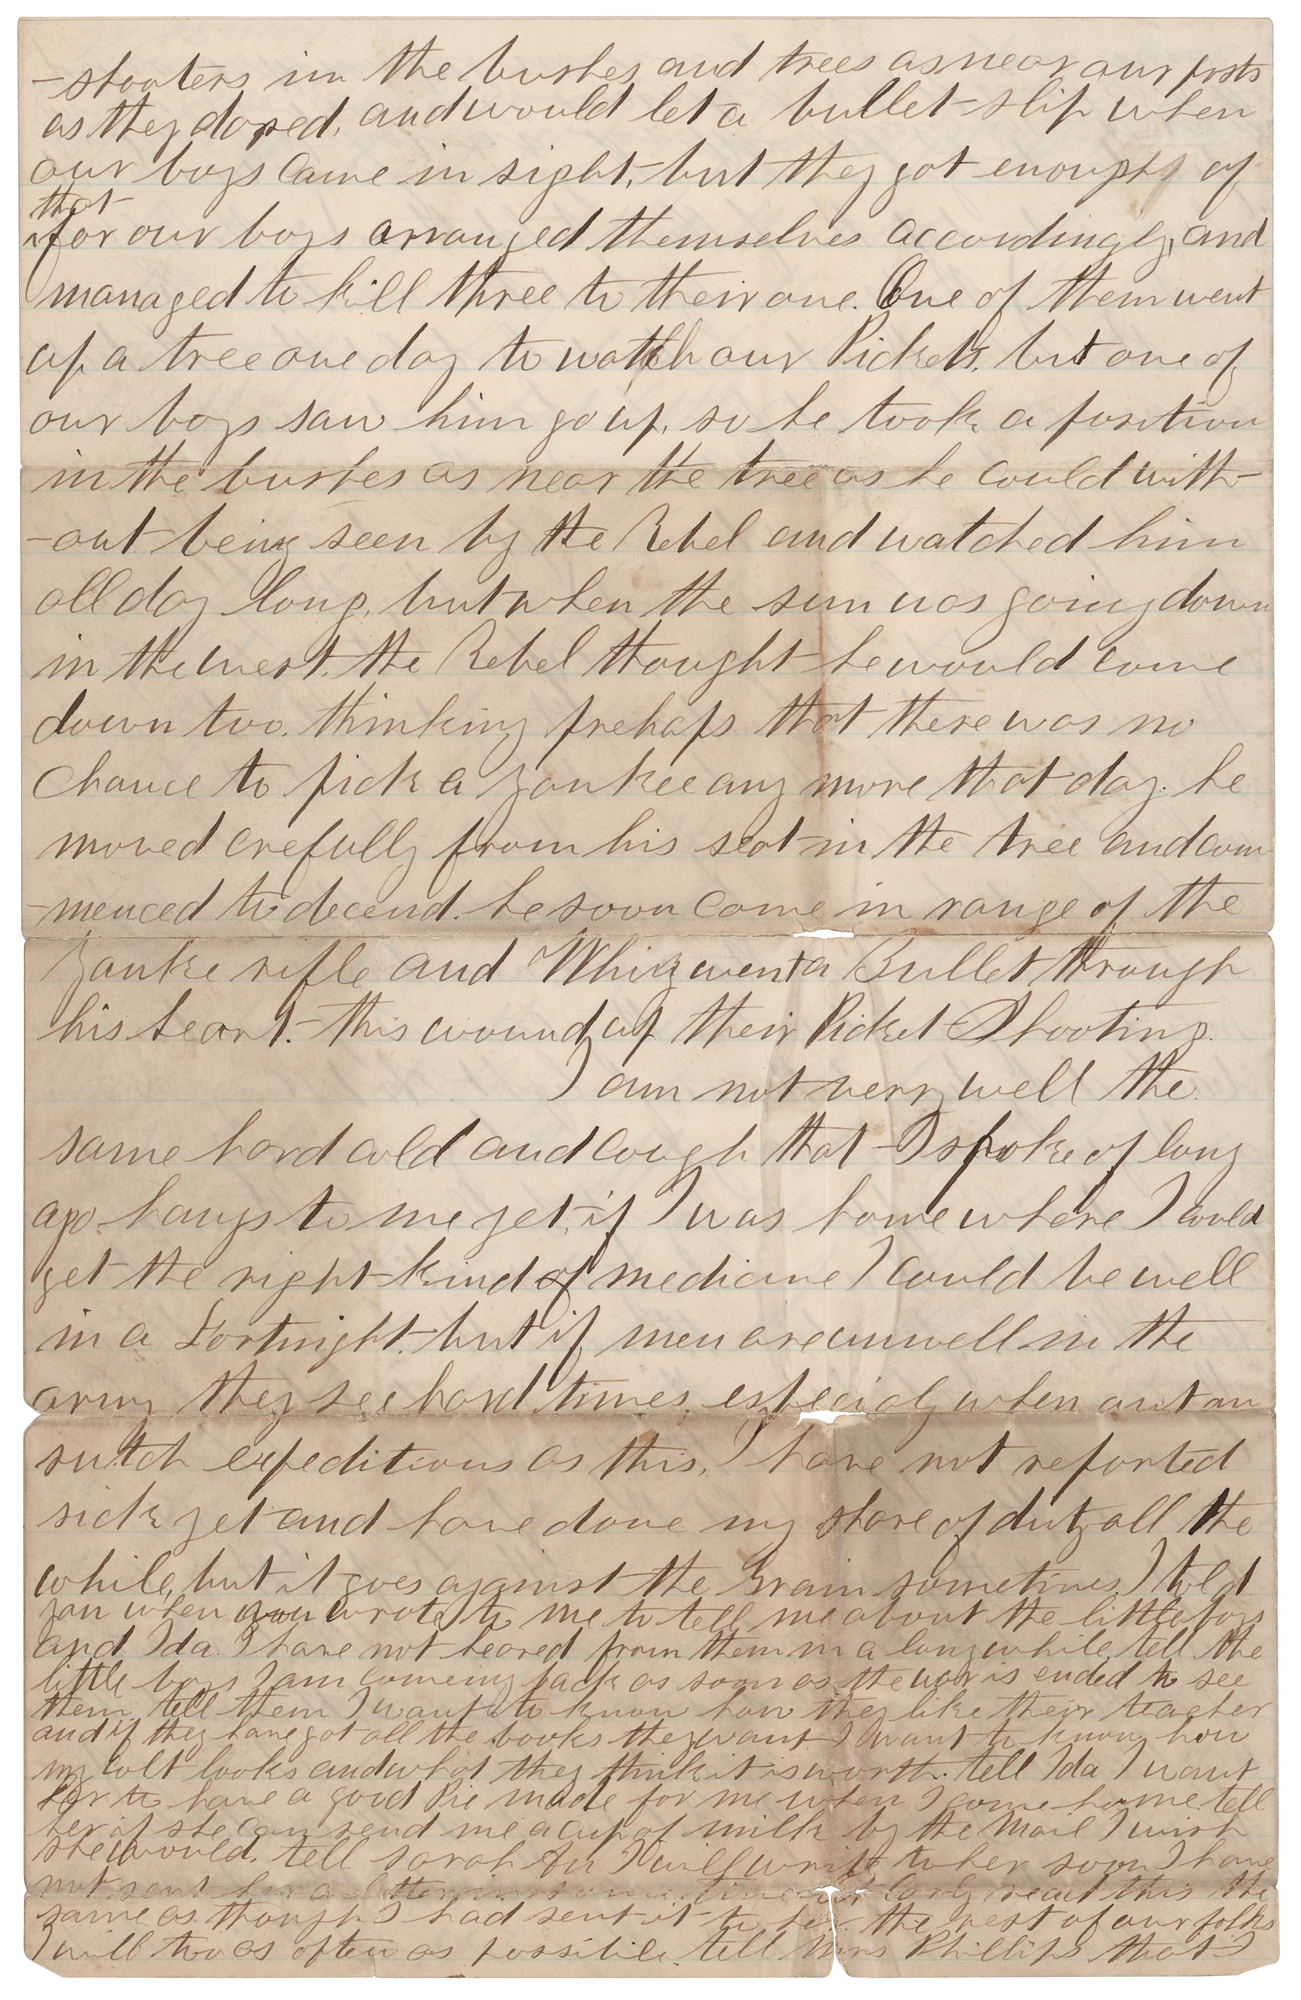 -shooters in the bushes and trees as near our posts
as they dared, and would let a bullet slip when
our boys came in sight, but they got enough of
that
for our boys arranged themselves accordingly, and
managed to kill three to their one. One of them went
up a tree one day to watch our Pickets, but one of
our boys saw him go up, so he took a position
in the bushes as near the tree as he could with-
-out being seen by the Rebel and watched him
all day long, but when the sun was going down
in the west, the Rebel thought he would come
down too, thinking prehaps that there was no
chance to pick a yankee any more that day. he
moved crefully from his seat in the tree and com
-menced to decend. he soon came in range of the
Yanke rifle and Whiz went a Bullet through
his heart. this wound up their Picket Shooting.
I am not very well the
same hard cold and cough that I spoke of long
ago hangs to me yet, if I was home where I could
get the right kind of medicine I could be well
in a Fortnight, but if men are unwell in the
army they see hard times, especialy when out on
sutch expeditions as this. I have not reported
sick yet and have done my share of duty all the
while, but it goes against the Grain sometimes. I told
you when you wrote to me to tell me about the little boys
and Ida. I have not heared from them in a long while, tell the
little boys I am comeing back as soon as the war is ended to see
them, tell them I want to know how they like their teacher
and if they have got all the books they want. I want to know how
my colt looks and what they think it is worth. tell Ida I want
her to have a good Pie made for me when I come home. tell
her if she can send me a cup of milk by the Mail I wish
she would. tell sarah An I will write to her soon I have
not sent her a letter in some time but Carly read this the
same as though I had sent it to her. the rest of our folks
I will too as often as possibile. tell Mrs Phillips that I